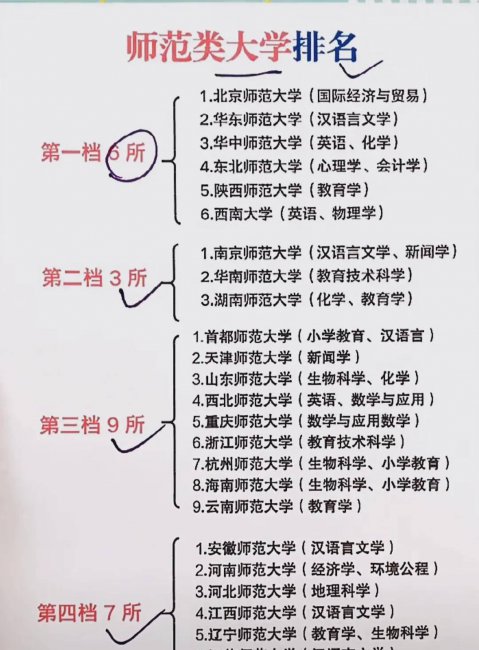 师范类大学排名
第一档 6 所
1.北京师范大学（国际经济与贸易）
2.华东师范大学（汉语言文学）
3.华中师范大学（英语、化学）
4.东北师范大学（心理学、会计学）
5.陕西师范大学（教育学）
6.西南大学（英语、物理学）
第二档 3 所
1.南京师范大学（汉语言文学、新闻学）
2.华南师范大学（教育技术科学）
3.湖南师范大学（化学、教育学）
第三档 9 所
1.首都师范大学（小学教育、汉语言）
2.天津师范大学（新闻学）
3.山东师范大学（生物科学、化学）
4.西北师范大学（英语、数学与应用）
5.重庆师范大学（数学与应用数学）
6.浙江师范大学（教育技术科学）
7.杭州师范大学（生物科学、小学教育）
8.海南师范大学（生物科学、小学教育）
9.云南师范大学（教育学）
第四档 7 所
1.安徽师范大学（汉语言文学）
2.河南师范大学（经济学、环境公程）
3.河北师范大学（地理科学）
4.江西师范大学（汉语言文学）
5.辽宁师范大学（教育学、生物科学）